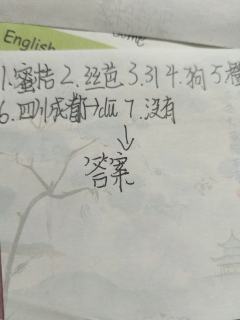 English
1.蜜桔 2.丝芭 3.31 4.狗 5.橙
6.四川成都→dū 7.没有
↓
答案